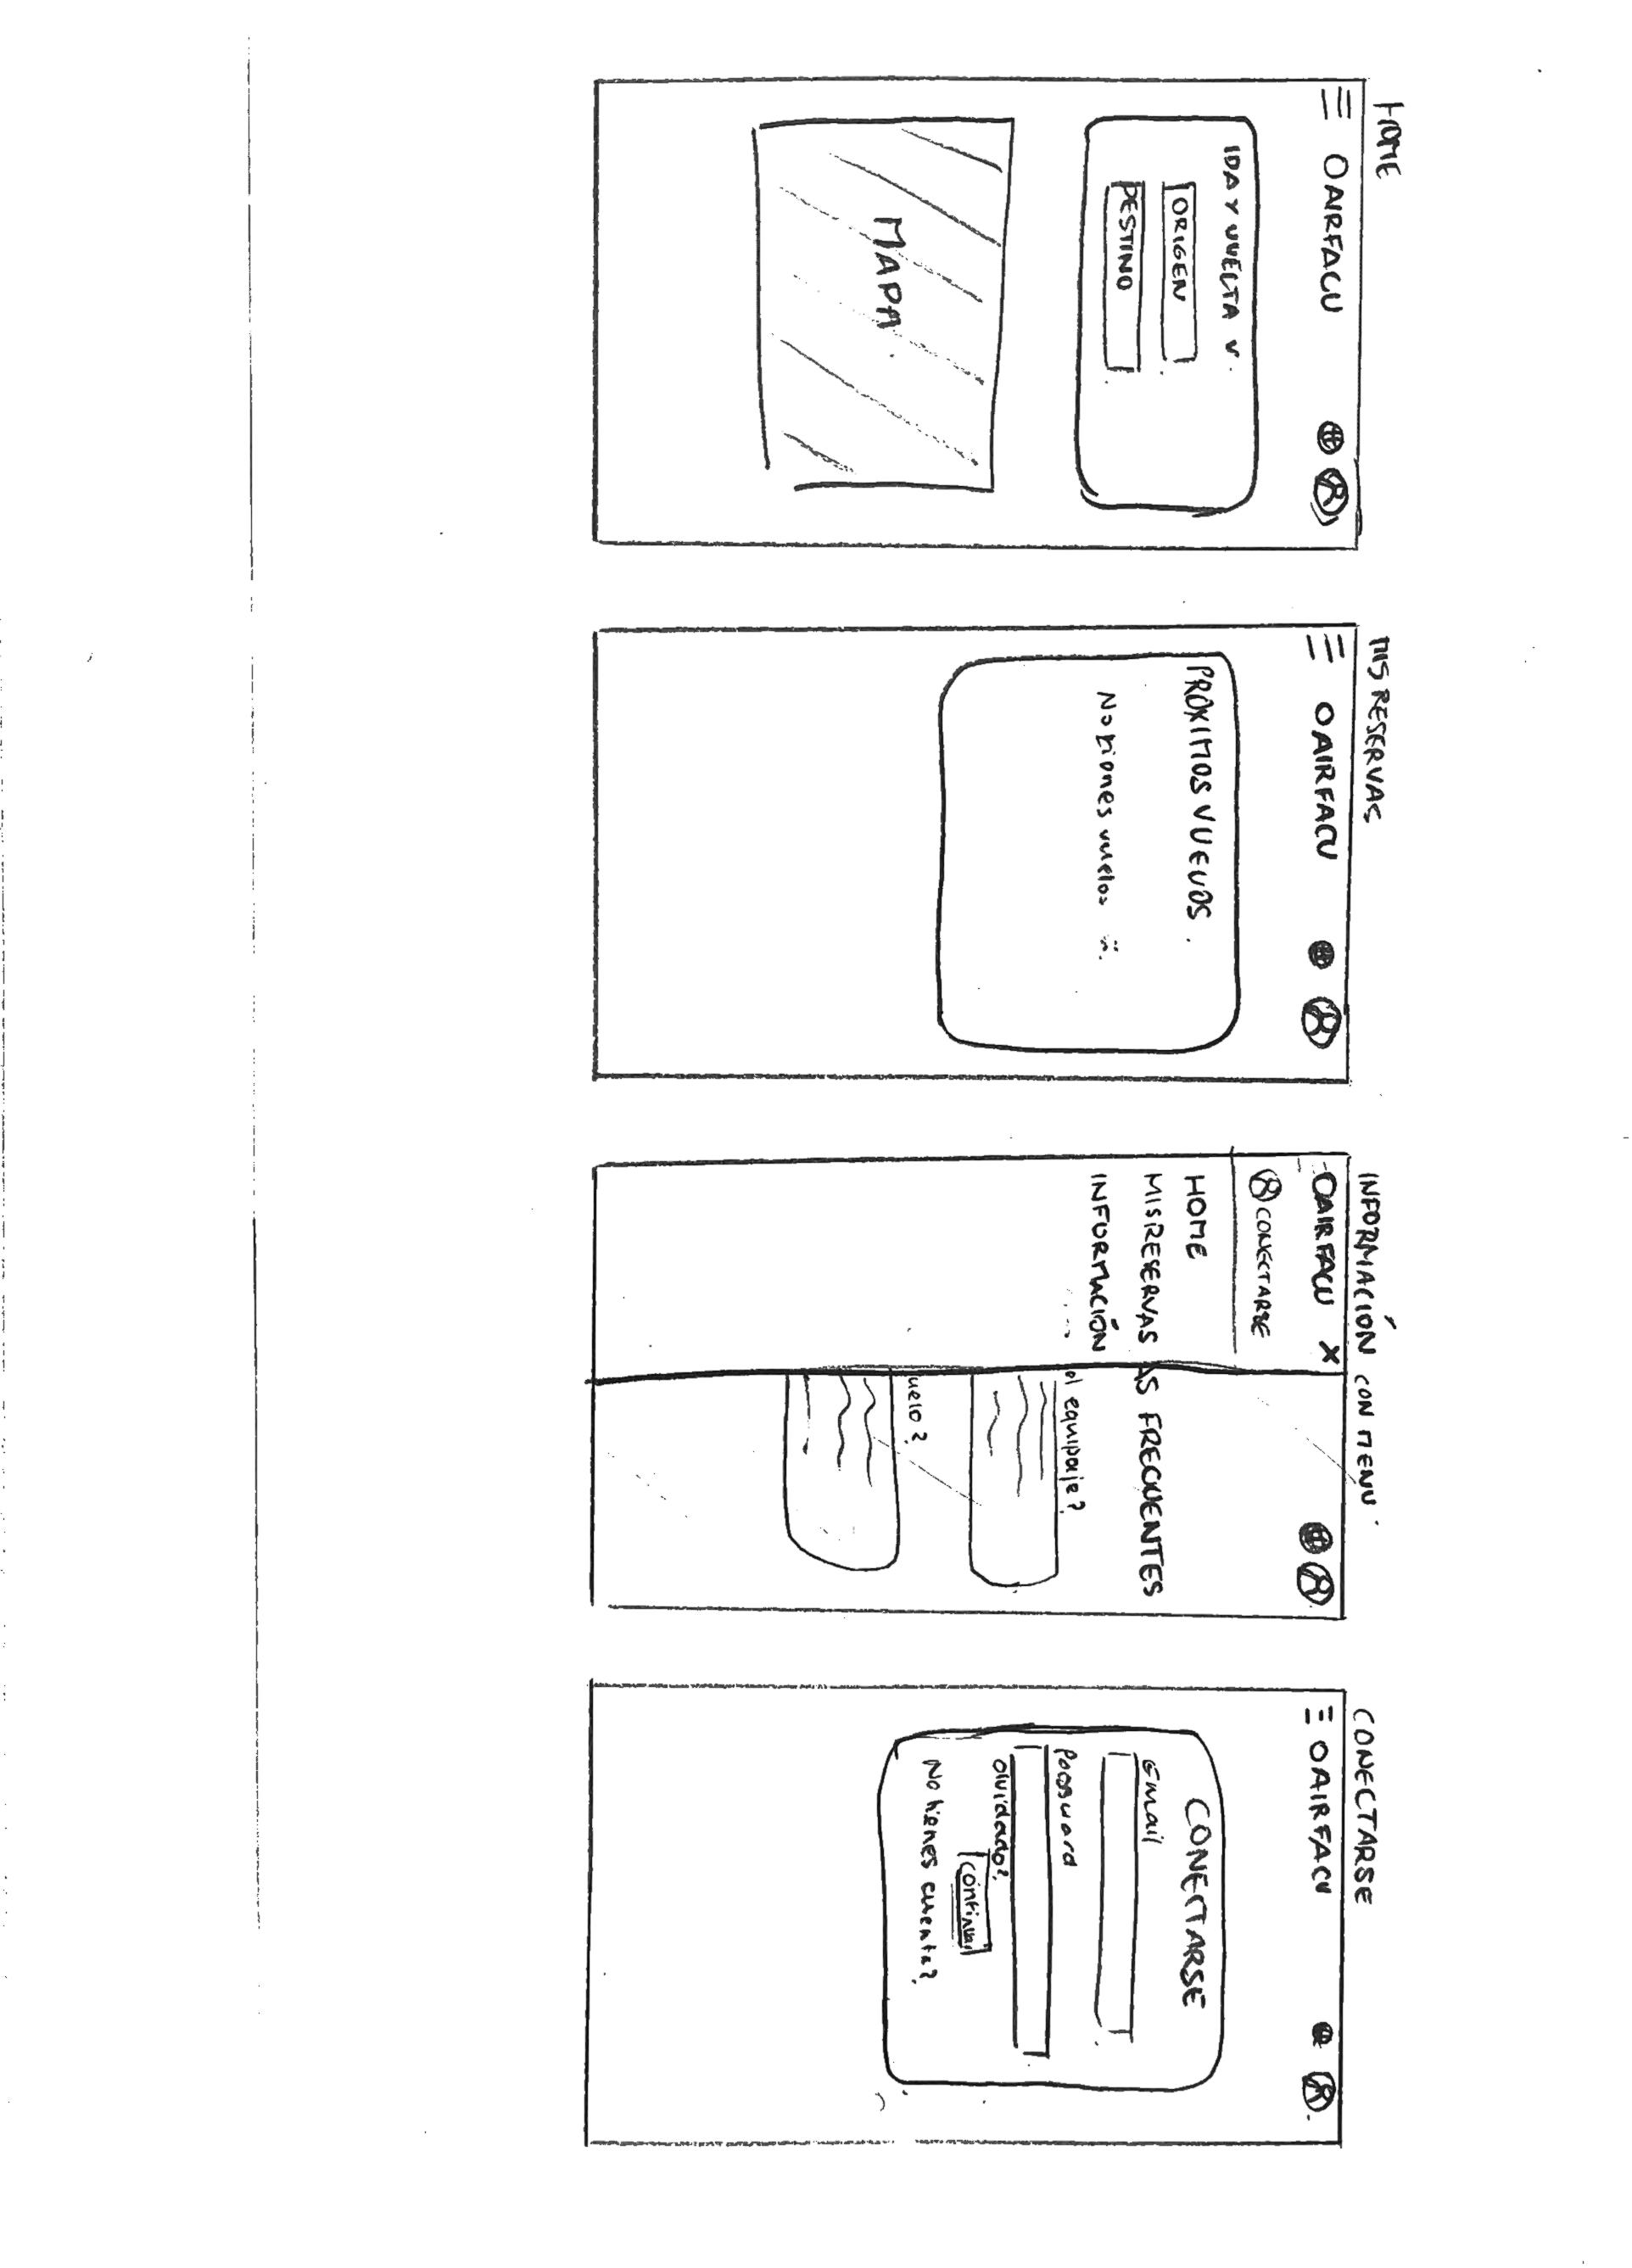 HOME
OAIRFACU
IDA Y VUELTA V
ORIGEN
DESTINO
MAPA
MIS RESERVAS
OAIRFACU
PROXIMOS VUELOS
No tienes vuelos :(
INFORMACIÓN CON MENU
OAIRFACU X
CONECTARSE
HOME
MIS RESERVAS
INFORMACIÓN
AS FRECUENTES
ol equipaje?
uelo?
CONECTARSE
OAIRFACU
CONECTARSE
Email
Password
olvidado?
continuar
No tienes cuenta?